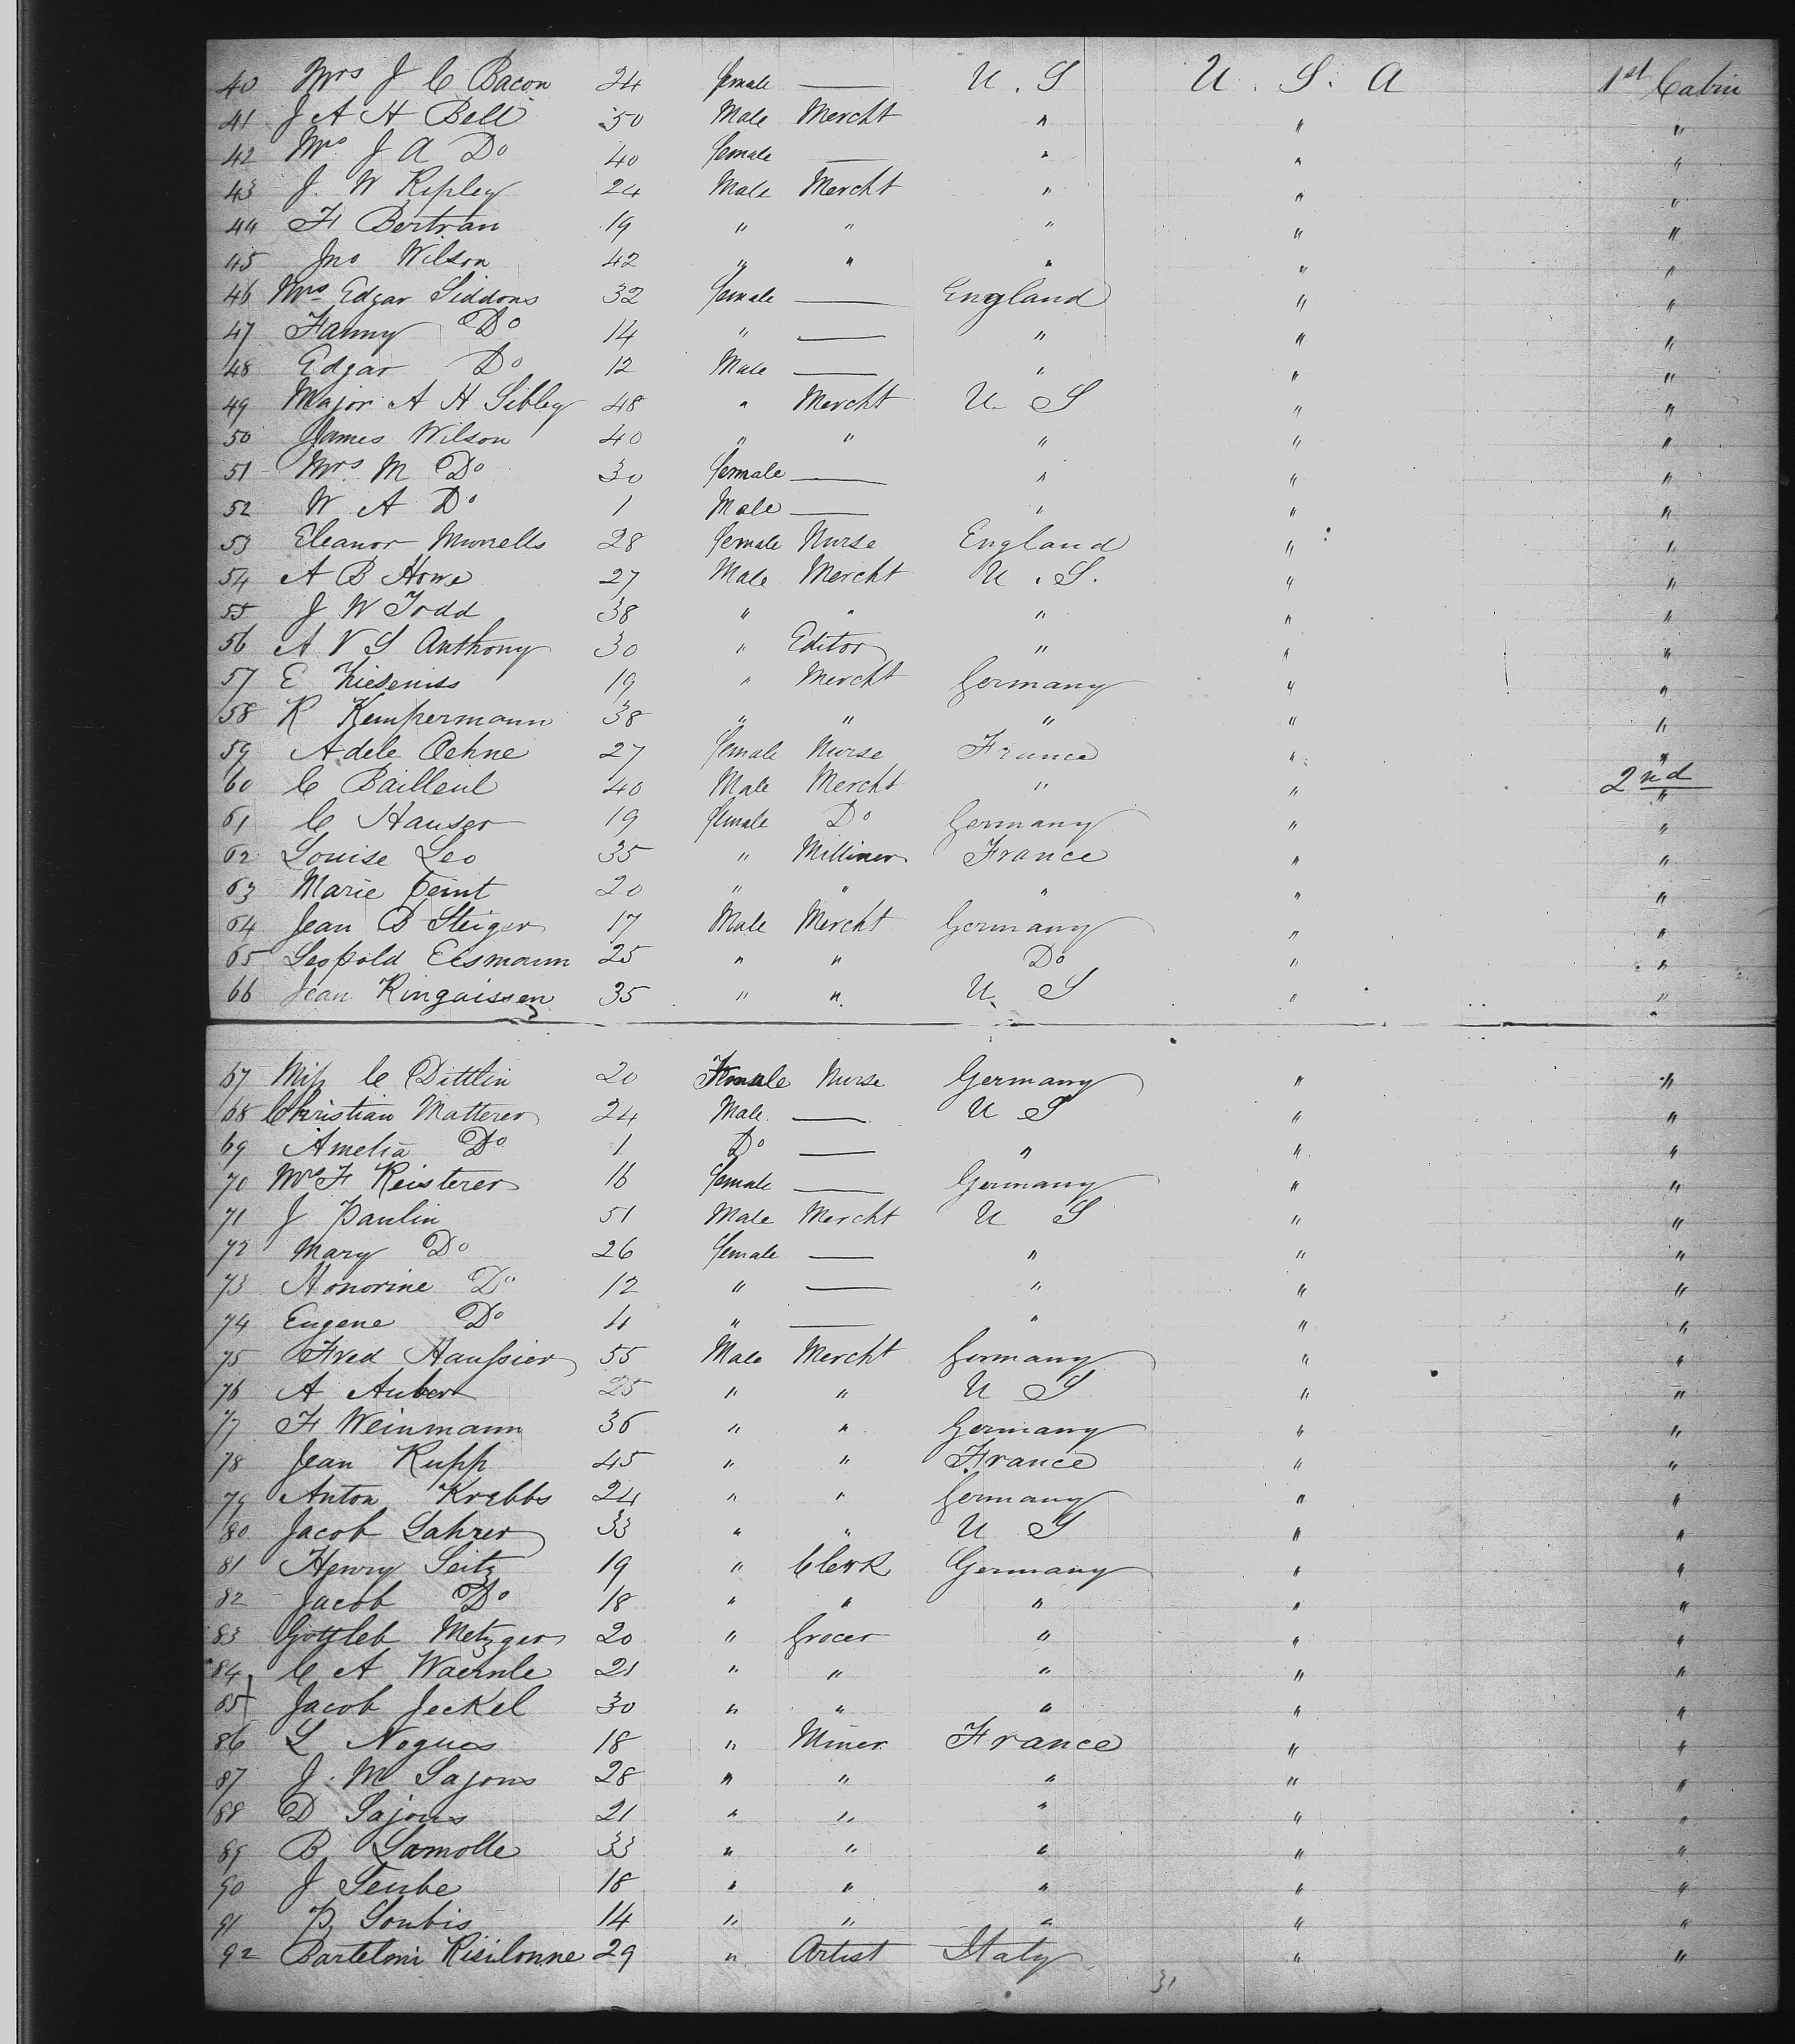 40 Mrs J C Bacon 24 female — U. S U. S. A 1st Cabin
41 J A H Bell 50 Male Mercht " " "
42 Mrs J A Do 40 female — " " "
43 J. W Ripley 24 Male Mercht " " "
44 F Bertran 19 " " " " "
45 Jno Wilson 42 " " " " "
46 Mrs Edgar Siddons 32 female — England " "
47 Fanny Do 14 " — " " "
48 Edgar Do 12 Male — " " "
49 Major A H Sibley 48 " Mercht U S " "
50 James Wilson 40 " " " " "
51 Mrs M Do 30 female — " " "
52 W A Do 1 Male — " " "
53 Eleanor Murrells 28 female Nurse England " "
54 A B Howe 27 Male Mercht U. S. " "
55 J W Todd 38 " " " " "
56 A V S Anthony 30 " Editor " " "
57 E 19 " Mercht Germany " "
58 R Kempermann 38 " " " " "
59 Adele Oehne 27 female Nurse France " "
60 C Bailleul 40 Male Mercht " " 2nd "
61 C Hauser 19 female Do Germany " "
62 Louise Leo 35 " Milliner France " "
63 Marie 20 " " " " "
64 Jean B Steiger 17 Male Mercht Germany " "
65 Leopold Eesmann 25 " " Do " "
66 Jean Ringaissen 35 " " U S " "
67 Miss C Dittlin 20 Female Nurse Germany " "
68 Christian Matterer 24 Male — U S " "
69 Amelia Do 1 Do — " " "
70 Mrs F Reisterer 16 female — Germany " "
71 J Paulin 51 Male Mercht U S " "
72 Mary Do 26 female — " " "
73 Honorine Do 12 " — " " "
74 Eugene Do 4 " — " " "
75 Fred Haussier 55 Male Mercht Germany " "
76 A Auber 25 " " U S " "
77 F Weinmann 36 " " Germany " "
78 Jean Rupp 45 " " France " "
79 Anton Krebbs 24 " " Germany " "
80 Jacob Lahrer 33 " " U S " "
81 Henry Seitz 19 " Clerk Germany " "
82 Jacob Do 18 " " " " "
83 Gottleb Metzger 20 " Grocer " " "
84 C A Waernle 21 " " " " "
85 Jacob Jeckel 30 " " " " "
86 L Nogues 18 " Miner France " "
87 J. M Sajous 28 " " " " "
88 D Sajous 21 " " " " "
89 B Lamolle 33 " " " " "
90 J Teube 18 " " " " "
91 P Soubis 14 " " " " "
92 Bartelomi Risilonne 29 " Artist Italy " "
31